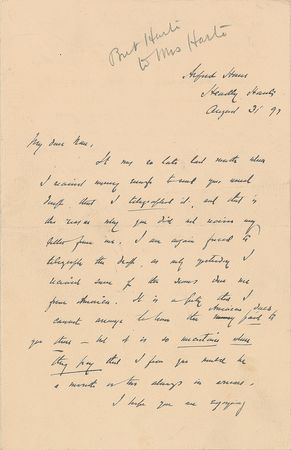 Bret Harte
to Mrs Harte
Arford House
Headley, Hants
August 31 97
My dear Nan,
It was so late last month when
I received money enough to send your usual
draft that I telegraphed it, and this is
the reason why you did not receive my
letter from me. I am again forced to
telegraph the draft, as only yesterday I
received some of the sums due me
from America. It is a pity that I
cannot arrange to have the American dues
money paid to
you there – but it is so uncertain when
they pay that I fear you would be
a month or two always in arrears.
I hope you are enjoying